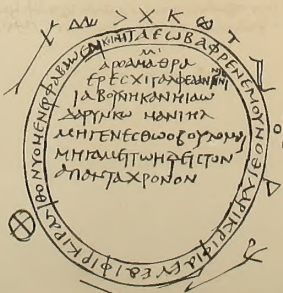 ΙΑΕΩΒΑΦΡΕΝΕΜΟΥΝΟΘΙΛΑΡΙΚΡΙΦΙΑΕΥΕΑΙΦΙΡΚΙΡΑΛΙΘΟΝΥΟΜΕΝΕΡΦΑΒΩΕΑΙ
ΑΡΟΑΜΑΘΡΑ
ΕΡΕΣΧΙΓΑΛ
ΙΑΒΟΥΝΗ ΚΑΝΗ ΙΑΩ
ΔΑΡΥΝΚΩ ΜΑΝΙΗΛ
ΜΗΓΕΝΕΣΘΩΟΒΟΥΛΟΜΑΙ
ΜΗΓΑΜΕΙΤΩΗΔΕΙΣΤΟΝ
ΑΠΑΝΤΑΧΡΟΝΟΝ